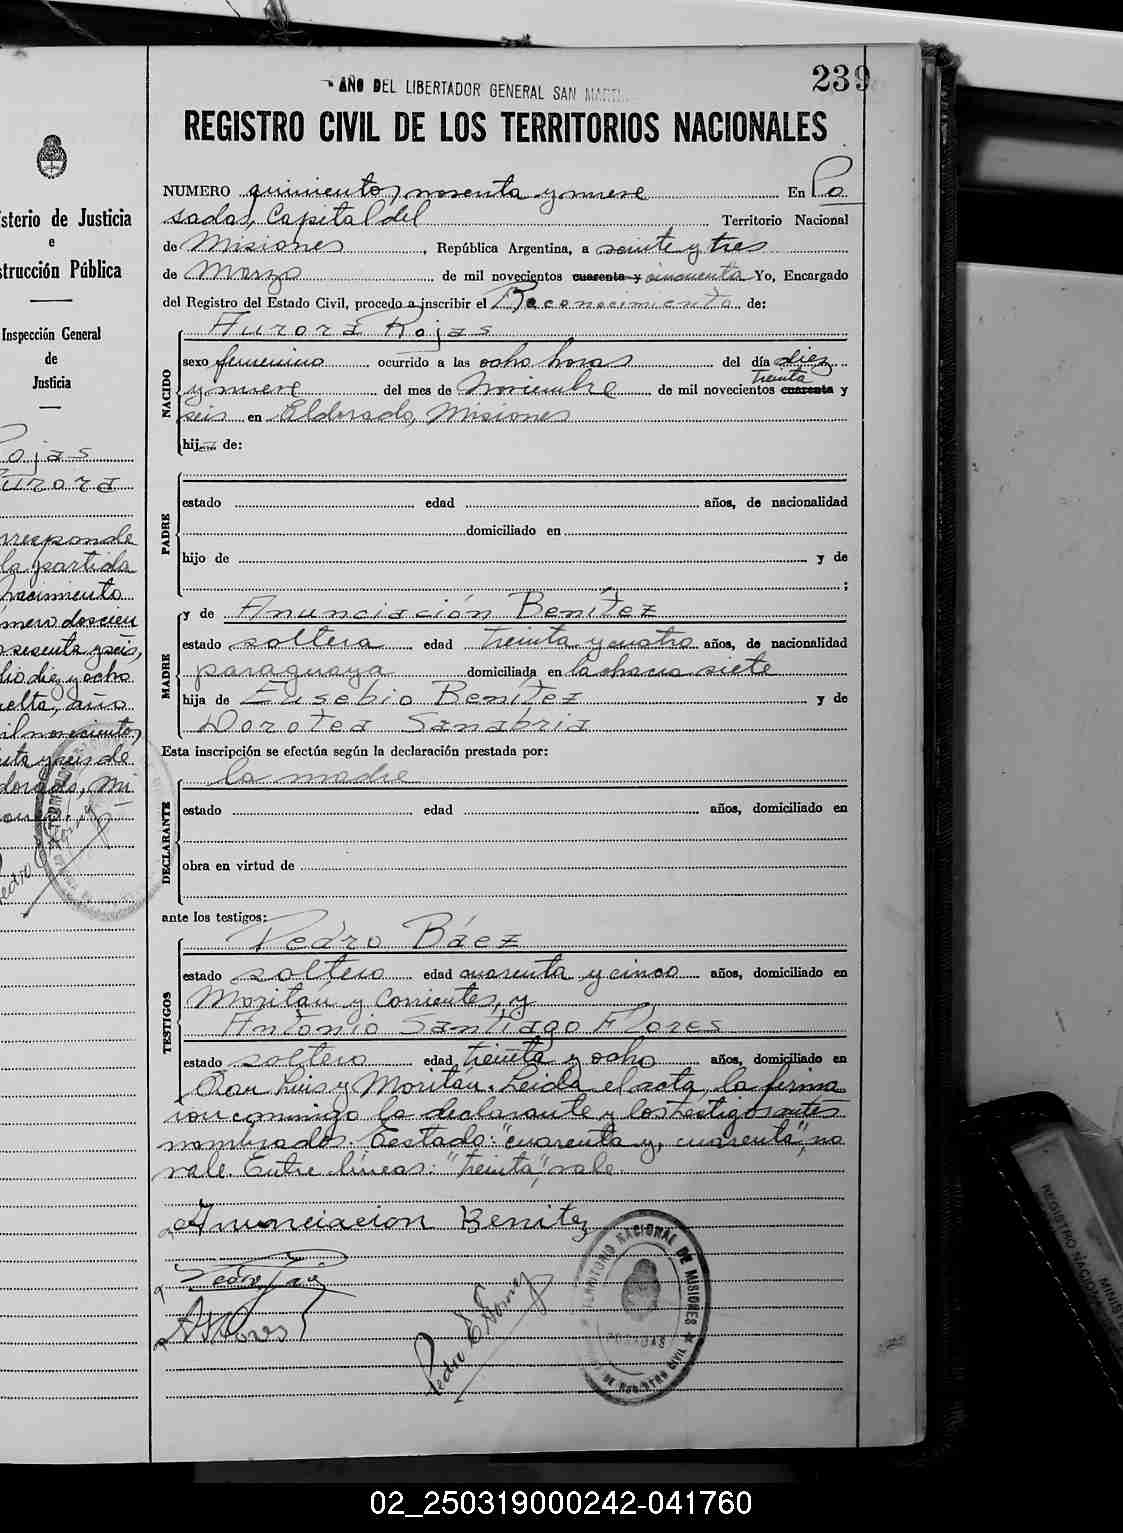 239
AÑO DEL LIBERTADOR GENERAL SAN MARTIN
REGISTRO CIVIL DE LOS TERRITORIOS NACIONALES
NUMERO quinientos noventa y nueve En Po
sadas, Capital del Territorio Nacional
de Misiones, República Argentina, a veinte y tres
de Marzo de mil novecientos cuarenta y cincuenta Yo, Encargado
del Registro del Estado Civil, procedo a inscribir el Reconocimiento de:
Aurora Rojas
NACIDO
sexo femenino ocurrido a las ocho horas del día diez
treinta
y nueve del mes de Noviembre de mil novecientos cuarenta y
seis en Eldorado, Misiones
hija de:
PADRE
estado edad años, de nacionalidad
domiciliado en
hijo de y de
;
MADRE
y de Anunciación Benítez
estado soltera edad treinta y cuatro años, de nacionalidad
paraguaya domiciliada en la chacra siete
hija de Eusebio Benítez y de
Dorotea Sanabria
Esta inscripción se efectúa según la declaración prestada por:
la madre
DECLARANTE
estado edad años, domiciliado en
obra en virtud de
ante los testigos:
TESTIGOS
Pedro Báez
estado soltero edad cuarenta y cinco años, domiciliado en
Moritán y Corrientes, y
Antonio Santiago Flores
estado soltero edad treinta y ocho años, domiciliado en
San Luis y Moritán. Leída el acta, la firma
ron conmigo la declarante y los testigos antes
nombrados. Testado: "cuarenta y, cuarenta", no
vale. Entre líneas: "treinta", vale
Anunciacion Benitez
Pedro Baez
A S Flores
Pedro E.
TERRITORIO NACIONAL DE MISIONES
POSADAS
REGISTRO CIVIL
isterio de Justicia
e
strucción Pública
Inspección General
de
Justicia
Rojas
Aurora
rresponde
la partida
nacimiento
mero doscien
s sesenta y seis,
lio diez y ocho
uelta, año
il novecientos
nta y seis de
dorado, Mi
REGISTRO
NACION
MINIST
02_250319000242-041760